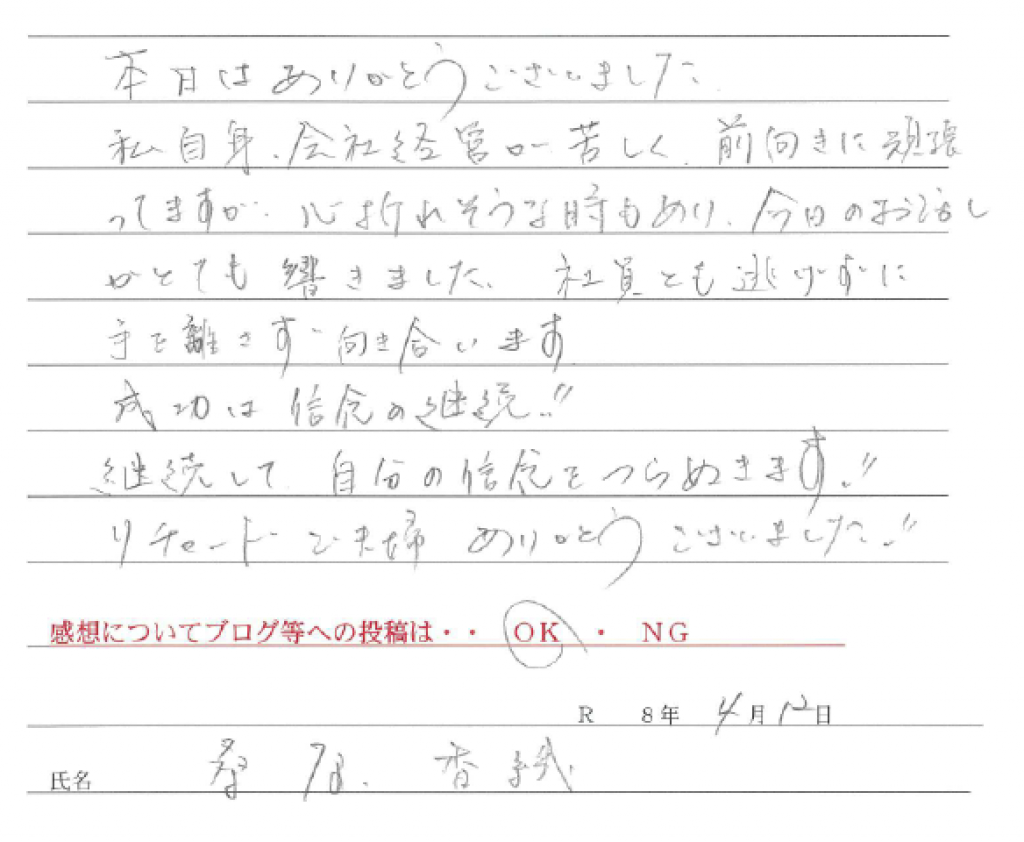 本日はありがとうございました
私自身、会社経営が苦しく、前向きに頑張
ってますが、心折れそうな時もあり、今日のお話し
がとても響きました、社員とも逃げずに
手を離さず向き合います
成功は信念の継続!!
継続して自分の信念をつらぬきます!!
リチャードご夫婦 ありがとうございました!!
感想についてブログ等への投稿は・・ OK ・ NG
R 8年 4月12日
氏名 香織